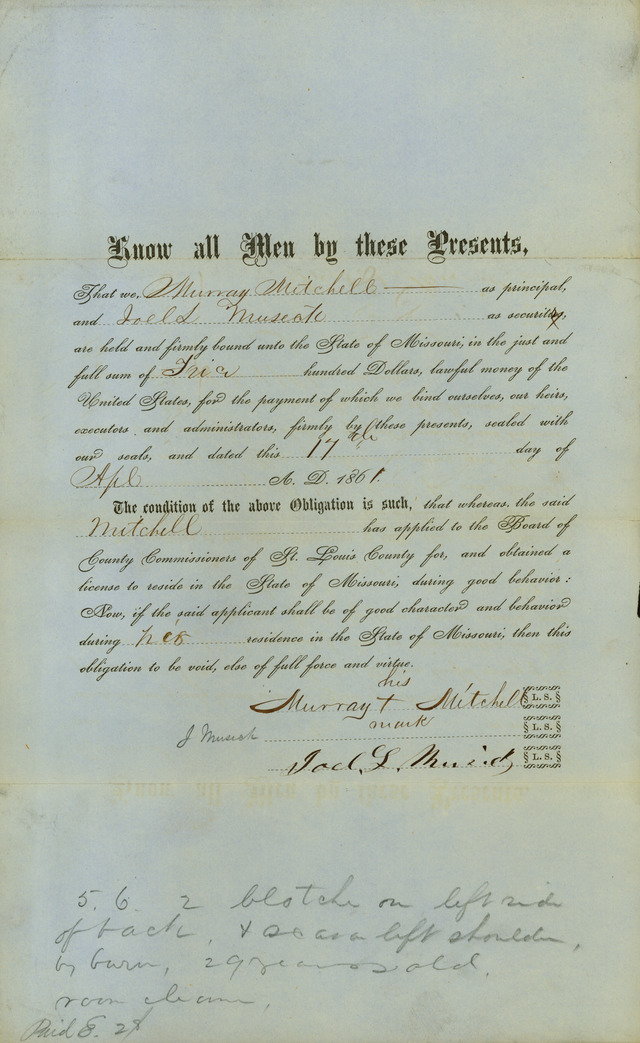 Know all Men by these Presents,
That we, Murray Mitchell as principal,
and Joel L Musick as security,
are held and firmly bound unto the State of Missouri, in the just and
full sum of hundred Dollars, lawful money of the
United States, for the payment of which we bind ourselves, our heirs,
executors and administrators, firmly by these presents, sealed with
our seals, and dated this 17th day of
Apl A. D. 1861.
The condition of the above Obligation is such, that whereas, the said
Mitchell has applied to the Board of
County Commissioners of St. Louis County for, and obtained a
license to reside in the State of Missouri, during good behavior:
Now, if the said applicant shall be of good character and behavior
during his residence in the State of Missouri, then this
obligation to be void, else of full force and virtue.
his
Murray + Mitchell L. S.
mark
J Musick L. S.
Joel L. Musick L. S.
5. 6. 2 blotche on left side
of back, + scar on left shoulder,
by burn, 29 years old.
room cleaner,
Paid